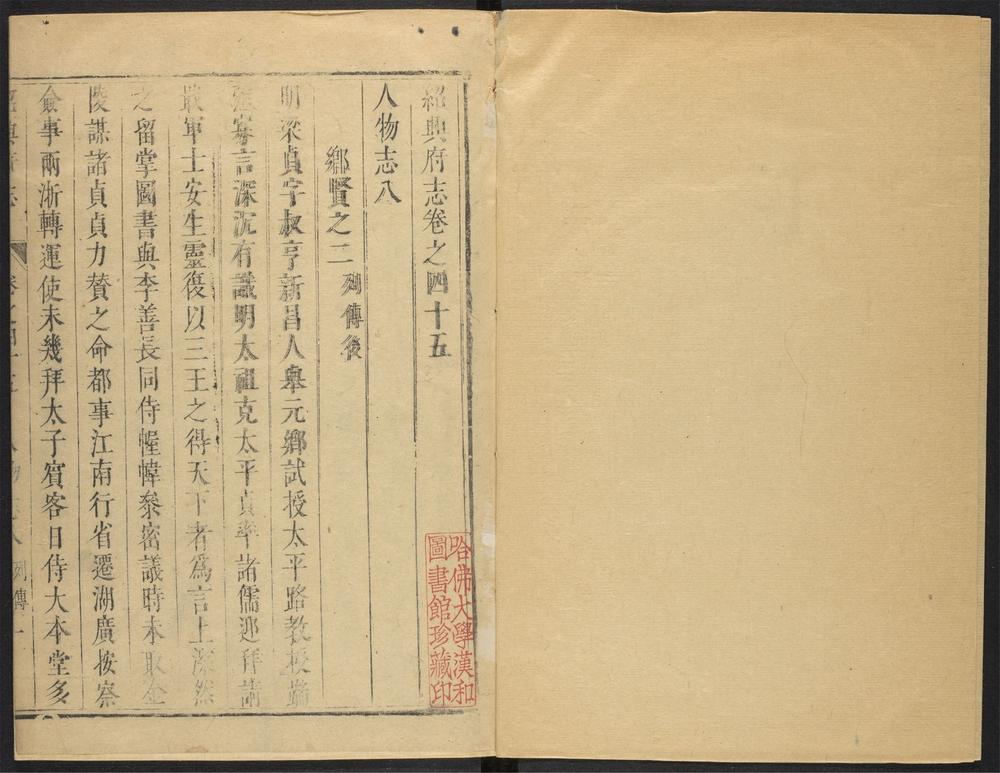 紹興府志卷之四十五
人物志八
鄉賢之二 列傳後
明梁貞字叔亨新昌人舉元鄉試授太平路教授端
寡言深沉有識明太祖克太平貞率諸儒迎拜請
戢軍士安生靈復以三王之得天下者為言上深然
之留掌圖書與李善長同侍幄幃叅密議時未取金
陵謀諸貞貞力贊之命都事江南行省遷湖廣按察
僉事兩浙轉運使未幾拜太子賓客日侍大本堂多
紹興府志 卷之四十五 人物志八 列傳 一
哈佛大學漢和
圖書館珍藏印